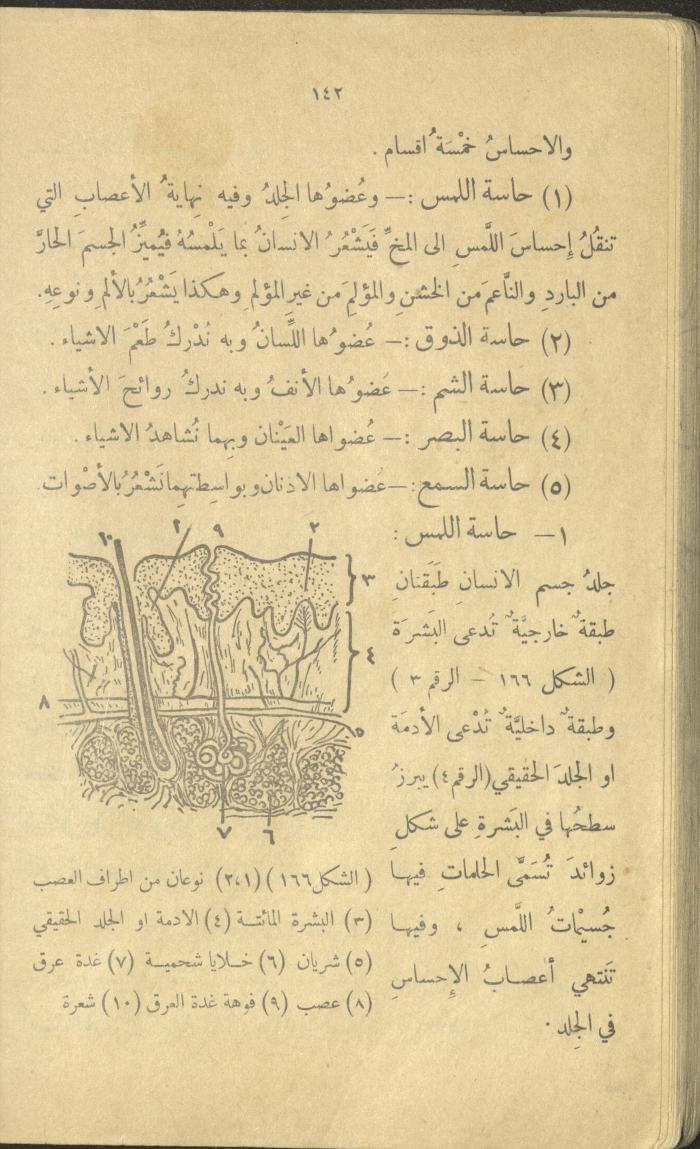 ١٤٢
والاحساسُ خمْسَةُ اقسام .
(١) حاسة اللمس :— وعُضوُها الجِلدُ وفيه نِهايةُ الأعصابِ التي
تنقُلُ إحساسَ اللَّمسِ الى المخِّ فَيَشْعُرُ الانسانُ بما يَلْمسُهُ فيُميِّزُ الجسمَ الحارَّ
من الباردِ والنَّاعمَ من الخشنِ والمؤلِمَ من غيرِ المؤلمِ وهكذا يَشْعُرُ بالألمِ ونوعِهِ.
(٢) حاسة الذوق :— عُضوُها اللِّسانُ وبه نُدْركُ طَعْمَ الاشياء .
(٣) حاسة الشم :— عَضوُها الأنفُ وبه ندركُ روائحَ الأشياء .
(٤) حاسة البصر :— عُضواها العَيْنان وبِهما نُشاهدُ الاشياء .
(٥) حاسة السمع :— عُضواها الاذنان وبواسِطتِهما نَشْعُرُ بالأصْوات
١— حاسة اللمس :
جلدُ جسم الانسانِ طَبَقتانِ
طبقةٌ خارجيَّةٌ تُدعى البَشرَة
( الشكل ١٦٦ — الرقم ٣ )
وطبقةٌ داخليَّةٌ تُدْعى الأدمَة
او الجلدَ الحقيقي (الرقم ٤) يبرزُ
سطحُها في البَشرةِ على شكلِ
زوائدَ تُسَمَّى الحلماتِ فيها
جُسيْماتُ اللَّمسِ ، وفيها
تَنتهي أعصابُ الإحساسِ
في الجِلد .
١٠ ١ ٩ ٢
٣
٤
٨
٥
٧ ٦
( الشكل ١٦٦ ) (٢،١) نوعان من اطراف العصب
(٣) البشرة المائتة (٤) الادمة او الجلد الحقيقي
(٥) شريان (٦) خلايا شحمية (٧) غدة عرق
(٨) عصب (٩) فوهة غدة العرق (١٠) شعرة